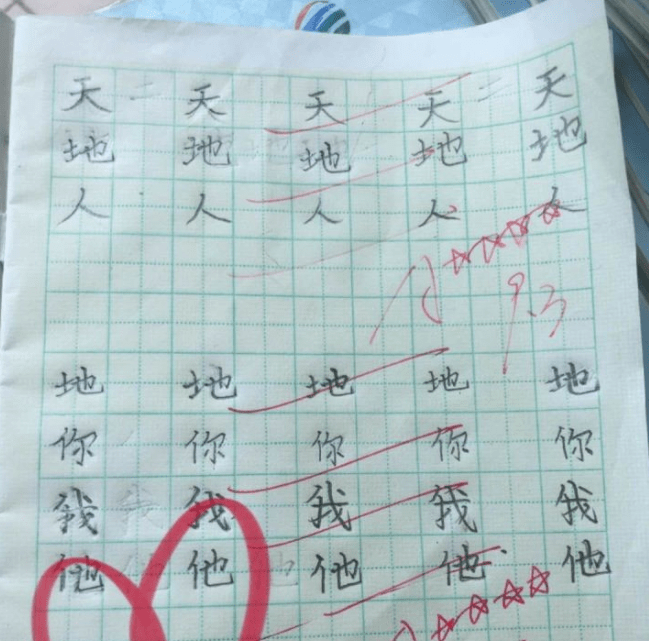 天 天 天 天 天
地 地 地 地 地
人 人 人 人 人
9.3
地 地 地 地 地
你 你 你 你 你
我 我 我 我 我
他 他 他 他 他